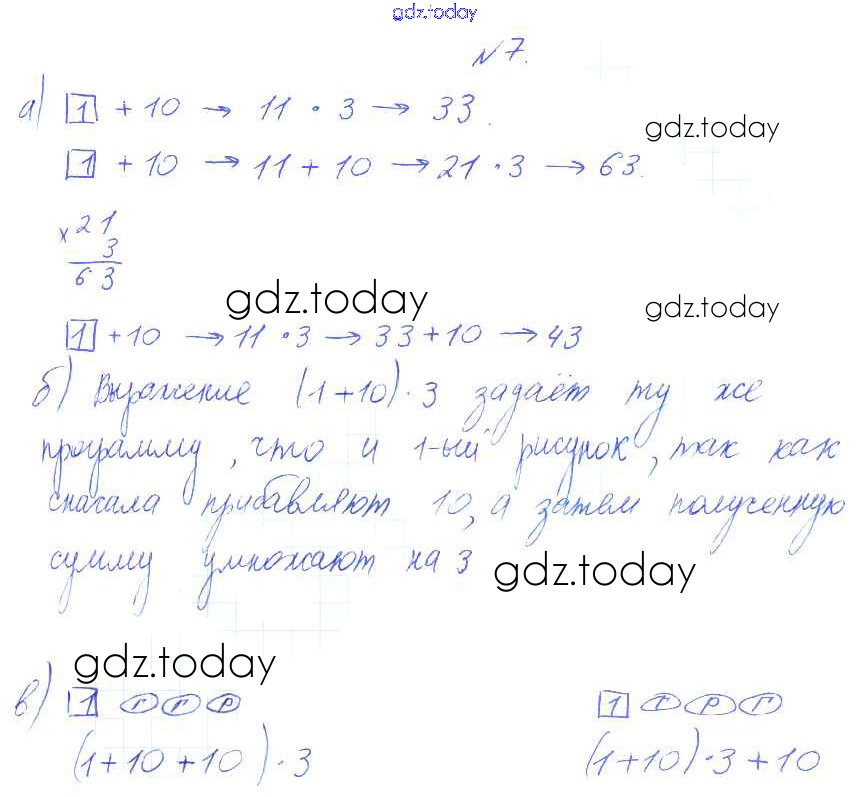 gdz.today
№7.
а) 1 + 10 → 11 · 3 → 33.
gdz.today
1 + 10 → 11 + 10 → 21 · 3 → 63.
× 21
3
63
gdz.today
gdz.today
1 + 10 → 11 · 3 → 33 + 10 → 43
б) Выражение (1+10) · 3 задаёт ту же
программу, что и 1-ый рисунок, так как
сначала прибавляют 10, а затем полученную
сумму умножают на 3
gdz.today
gdz.today
в) 1 г г р 1 г р г
(1+10+10) · 3 (1+10) · 3 + 10